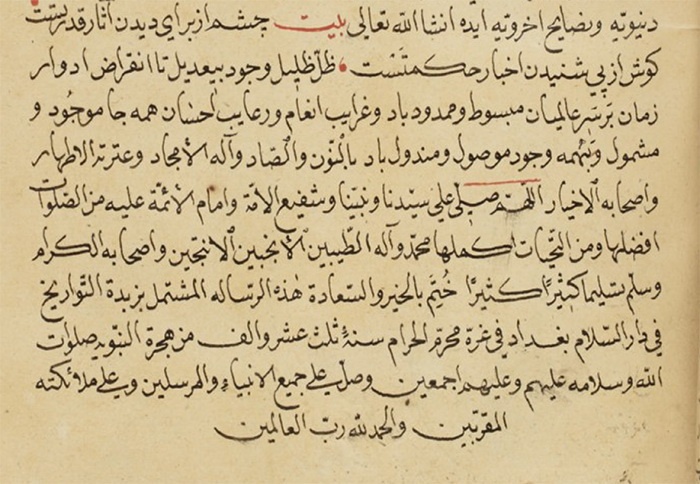 دنيويّه ونصايح اخرويّه ايده انشا الله تعالى بيت چشم از براي ديدن آثار قدرتست
كوش از پي شنيدن اخبار حكمتست ظلّ ظليل وجود بيعديل تا انقراض ادوار
زمان بر سر عالميان مبسوط وممدود باد وغرايب انعام ورعايب احسان همه جا موجود و
مشمول وتتمه وجود موصول ومبذول باد بالنّون والصّاد وآله الأمجاد وعترته الاطهار
واصحابه الاخيار اللهمّ صلّي على سيّدنا ونبيّنا وشفيع الامّة وامام الأئمّة عليه من الصّلوات
افضلها ومن التّحيّات اكملها محمّد وآله الطّيبين الأنجبين الانتجبين واصحابه الكرام
وسلّم تسليما كثيرًا كثيرًا ختم بالخير والسّعادة هذه الرساله المشتمل بزبدة التّواريخ
في دار السّلام بغداد في غرة محرّم الحرام سنهٔ ثلث عشر والف من هجرة النّبويه صلوات
الله وسلامه عليهم وعليهم اجمعين وصلّ على جميع الانبياء والمرسلين وعلى ملائكته
المقرّبين والحمد لله ربّ العالمين